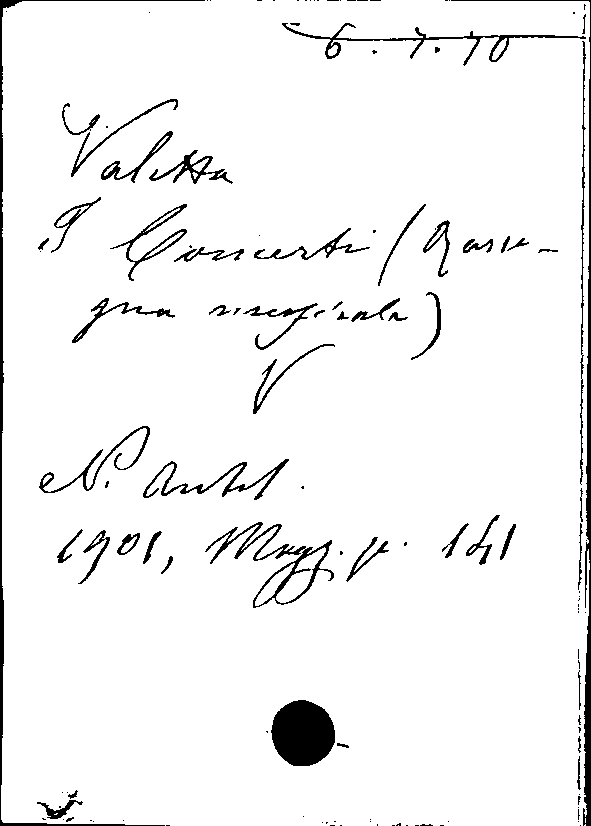 6. 7. 70
Valetta
I Concerti (Rasse-
gna musicale)
V
N. Antol.
1901, Magg. p. 141